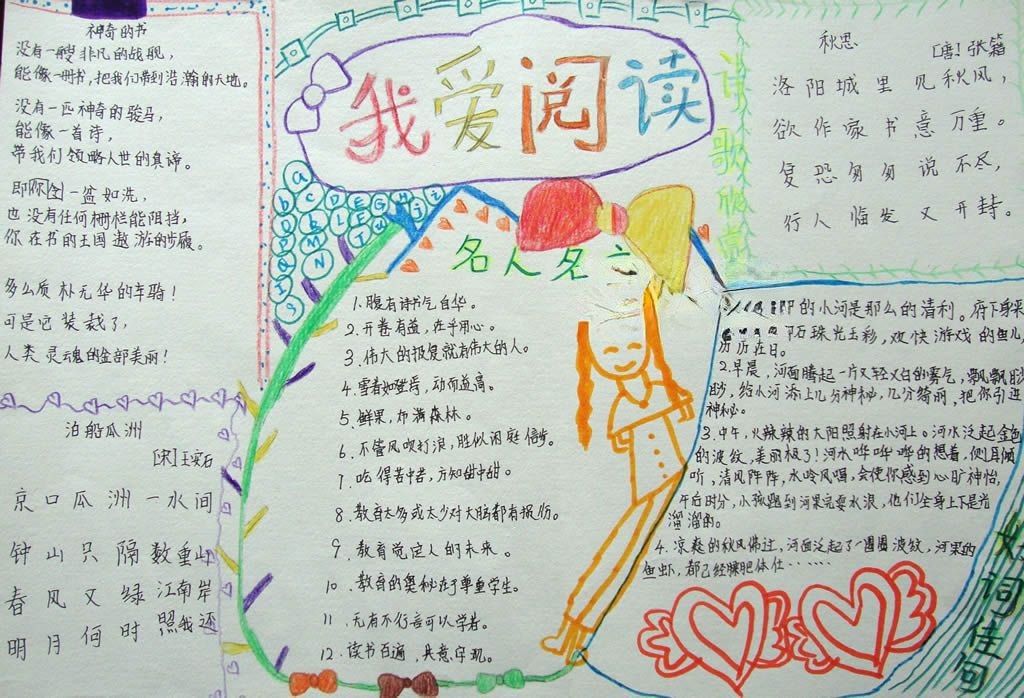 神奇的书
没有一艘非凡的战舰，
能像一册书，把我们带到浩瀚的天地。
没有一匹神奇的骏马，
能像一首诗，
带我们领略人世的真谛。
即你图一盆如洗，
也没有任何栅栏能阻挡，
你在书的王国遨游的步履。
多么质朴无华的车骑！
可是它装裁了，
人类灵魂的全部美丽！
泊船瓜洲
[宋]王安石
京口瓜洲一水间
钟山只隔数重山
春风又绿江南岸
明月何时照我还
我爱阅读
名人名言
1.腹有诗书气自华。
2.开卷有益，在乎用心。
3.伟大的报复就有伟大的人。
4.雪春如登持，动而益高。
5.鲜果，布满森林。
6.不管风吹打浪，胜似闲庭信步。
7.吃得苦中者，方知甜中甜
8.教育太多或太少对大脑都有损伤。
9.教育觉定人的未来。
10.教育的奥秘在于尊重学生。
11.无有不行言可以学者。
12.读书百遍，其意字现。
诗歌欣赏
秋思
[唐!张籍
洛阳城里见秋风，
欲作家书意万重。
复恐匆匆说不尽，
行人临发又开封。
的小河是那么的清利。府下身来
石珠光玉彩，欢快游戏的鱼儿
历历在目。
2.早晨，河面腾起一片又轻又白的雾气，飘飘眇
眇，给小河添上几分神秘，几分绮丽，把你引进
神秘。
3.中午，火辣辣的大阳照射在小河上。河水泛起金色
的波纹，美丽极了！河水哗哗哗的想着，侧耳倾
听，清风阵阵，水呤风唱，会使你感到心旷神怡，
午白时分，小孩跑到河果完耍水浪，他们全身上下是光
溜溜的。
4.凉爽的秋风佛过，河面泛起了一圈圈波纹，河果的
鱼虾，都已经膘肥体仕……
好词佳句